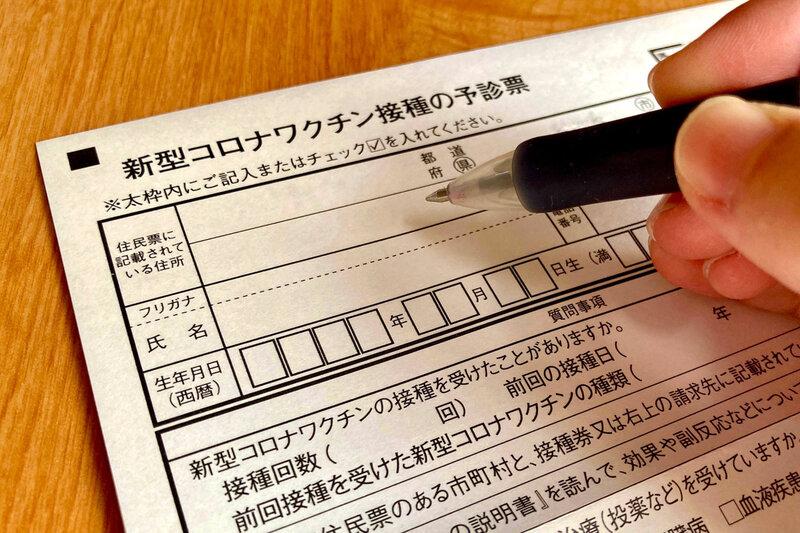 ■ 新型コロナワクチン接種の予診票
※太枠内にご記入またはチェック☑を入れてください。
住民票に
記載されて
いる住所
都 道
府 県
市
電話
番号
フリガナ
氏 名
生年月日
(西暦)
年 月 日生 (満
質問事項
新型コロナワクチンの接種を受けたことがありますか。
接種回数 ( 回) 前回の接種日( 年
前回接種を受けた新型コロナワクチンの種類(
住民票のある市町村と、接種券又は右上の請求先に記載されて
の説明書』を読んで、効果や副反応などについ
治療(投薬など)を受けていますか
臓病 □血液疾患